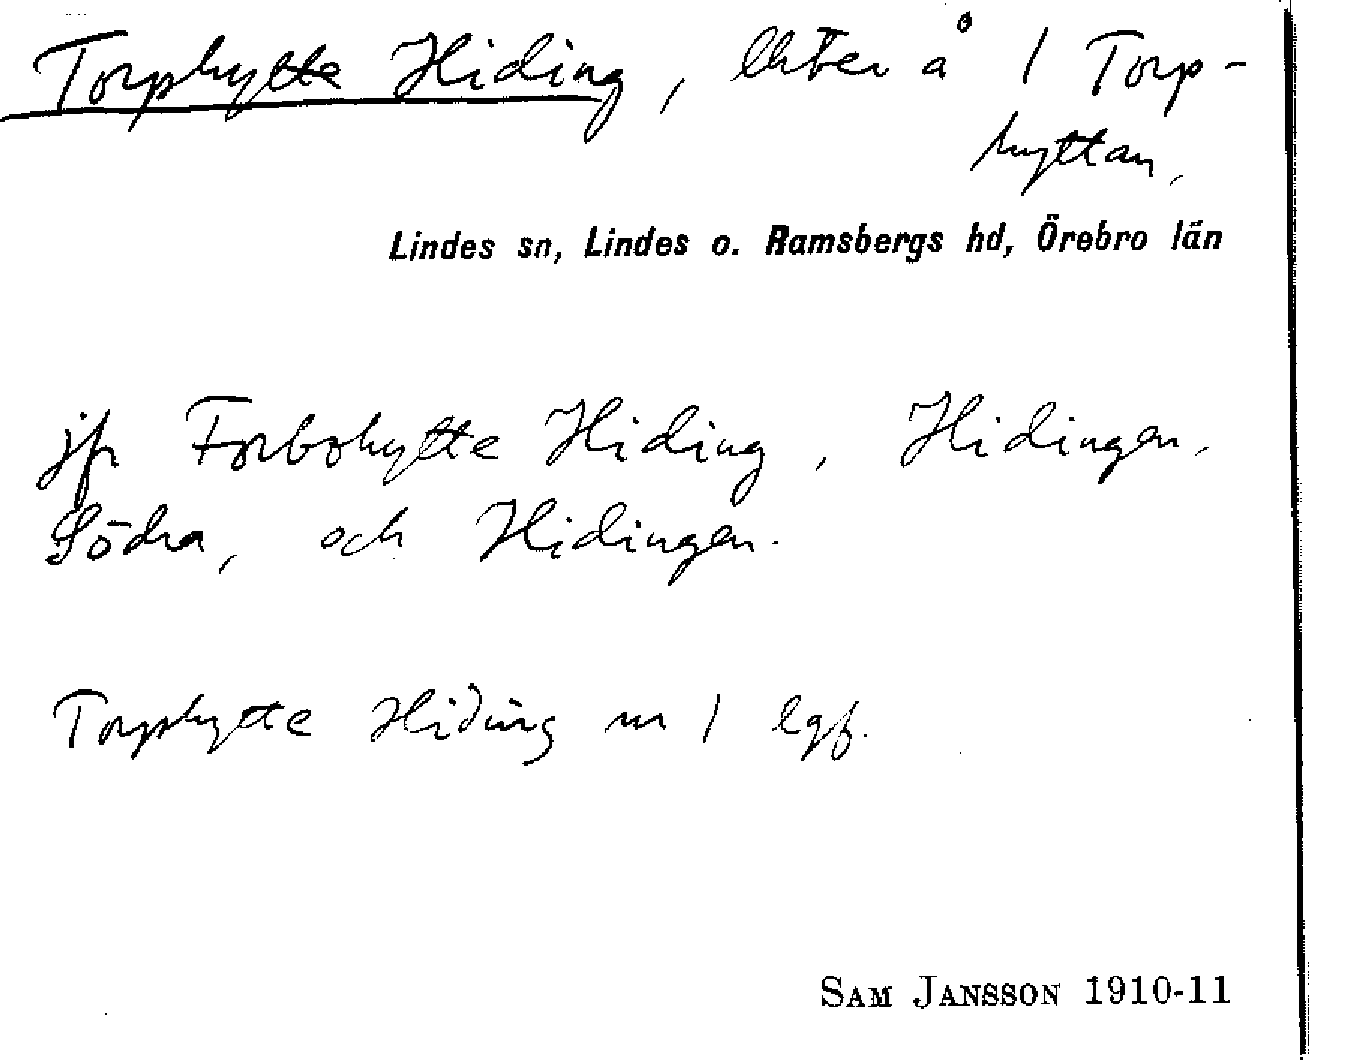 Torphytte Hiding, lhter å 1 Torp-
hyttan,
Lindes sn, Lindes o. Ramsbergs hd, Örebro län
jfr Forbohytte Hiding, Hidingen,
Södra, och Hidingen.
Torphytte Hiding nr 1 lgf.
SAM JANSSON 1910-11